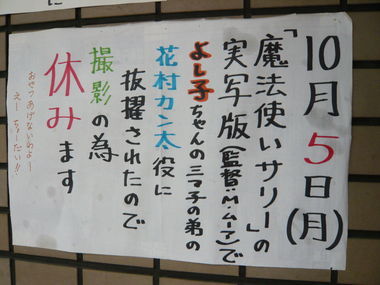 10月5日(月)
「魔法使いサリー」の
実写版(監督・M・ムーア)で
よし子ちゃんの三つ子の弟の
花村カン太役に
抜擢されたので
撮影の為
休みます
おやつあげないわよー
えーちょーだい!!